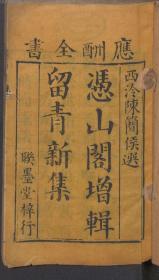 應酬全書
西泠陳簡侯選
憑山閣增輯
留青新集
聯墨堂梓行